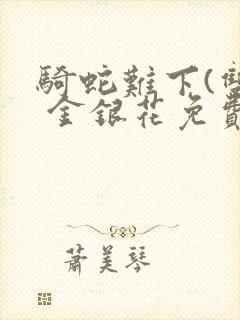 騎蛇難下(雙
金銀花免費
蕭美琴